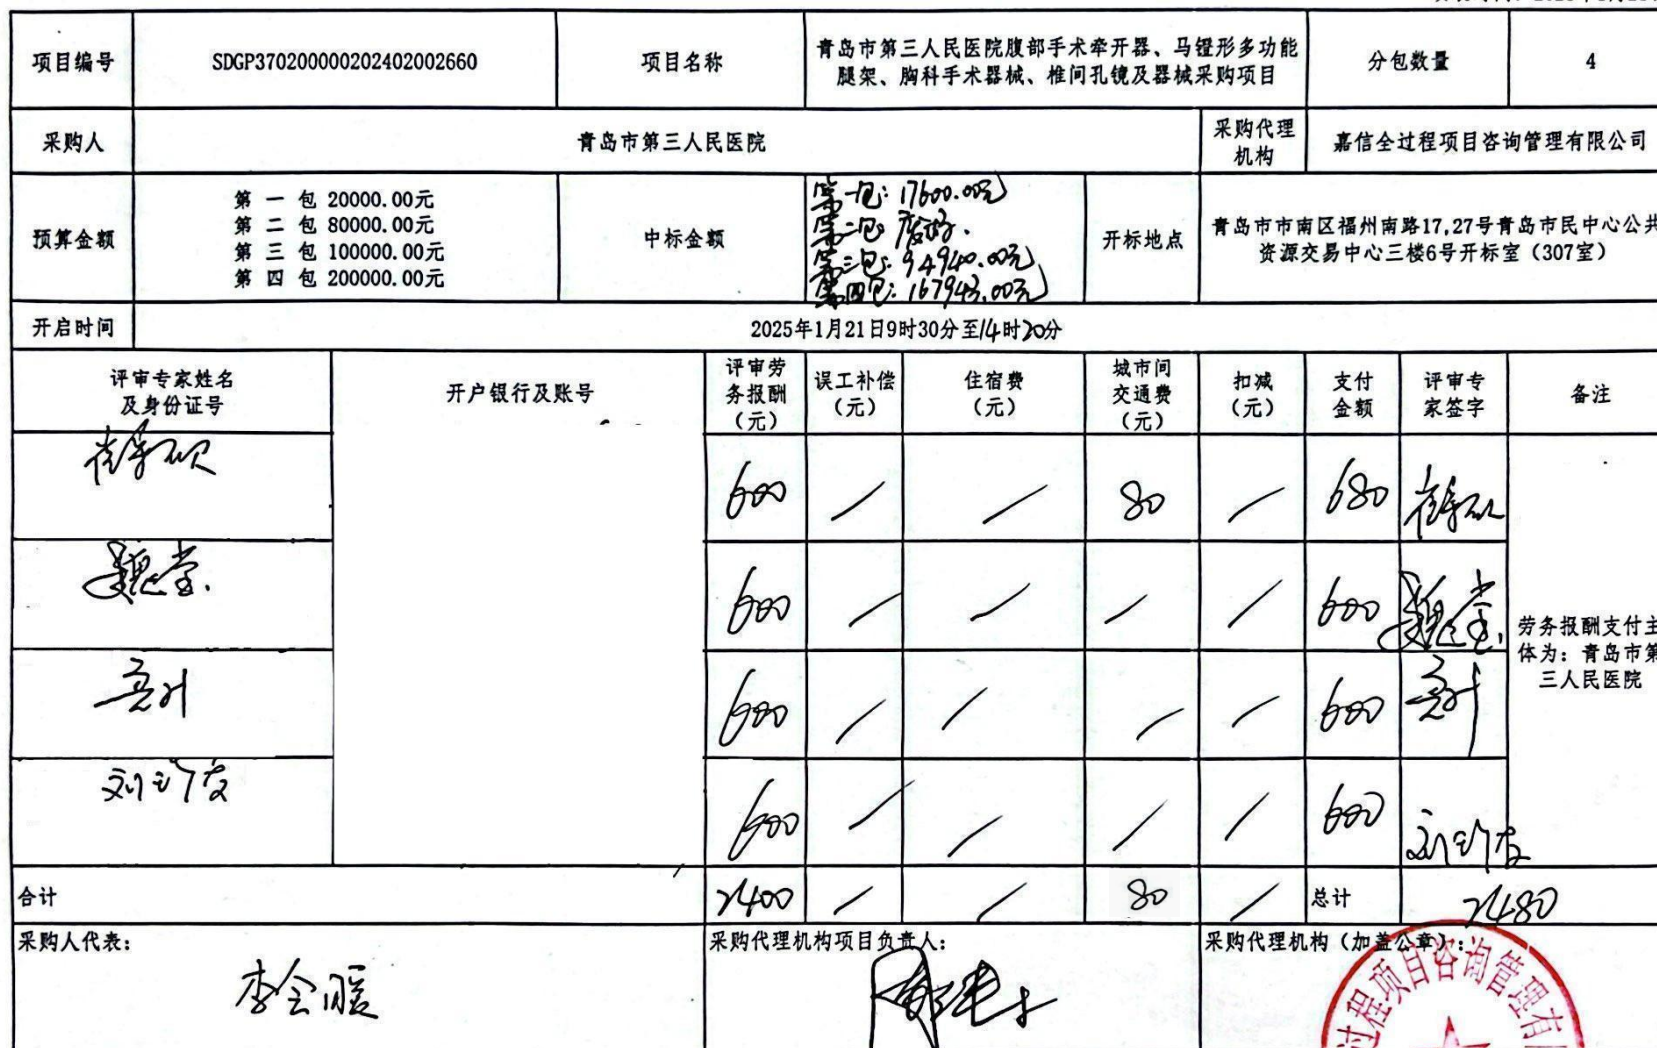 项目编号
SDGP370200000202402002660
项目名称
青岛市第三人民医院腹部手术牵开器、马镫形多功能
腿架、胸科手术器械、椎间孔镜及器械采购项目
分包数量
4
采购人
青岛市第三人民医院
采购代理
机构
嘉信全过程项目咨询管理有限公司
预算金额
第 一 包 20000.00元
第 二 包 80000.00元
第 三 包 100000.00元
第 四 包 200000.00元
中标金额
第一包: 17600.00元
第二包 废标.
第三包: 94940.00元
第四包: 167943.00元
开标地点
青岛市市南区福州南路17,27号青岛市民中心公共
资源交易中心三楼6号开标室（307室）
开启时间
2025年1月21日9时30分至14时20分
评审专家姓名
及身份证号
开户银行及账号
评审劳
务报酬
（元）
误工补偿
（元）
住宿费
（元）
城市间
交通费
（元）
扣减
（元）
支付
金额
评审专
家签字
备注
600
/
/
80
/
680
魏堂.
600
/
/
/
/
600
魏堂.
600
/
/
/
/
600
600
/
/
/
/
600
劳务报酬支付主
体为: 青岛市第
三人民医院
合计
2400
/
/
80
/
总计
2480
采购人代表:
李会暖
采购代理机构项目负责人:
采购代理机构（加盖公章）:
过程项目咨询管理有